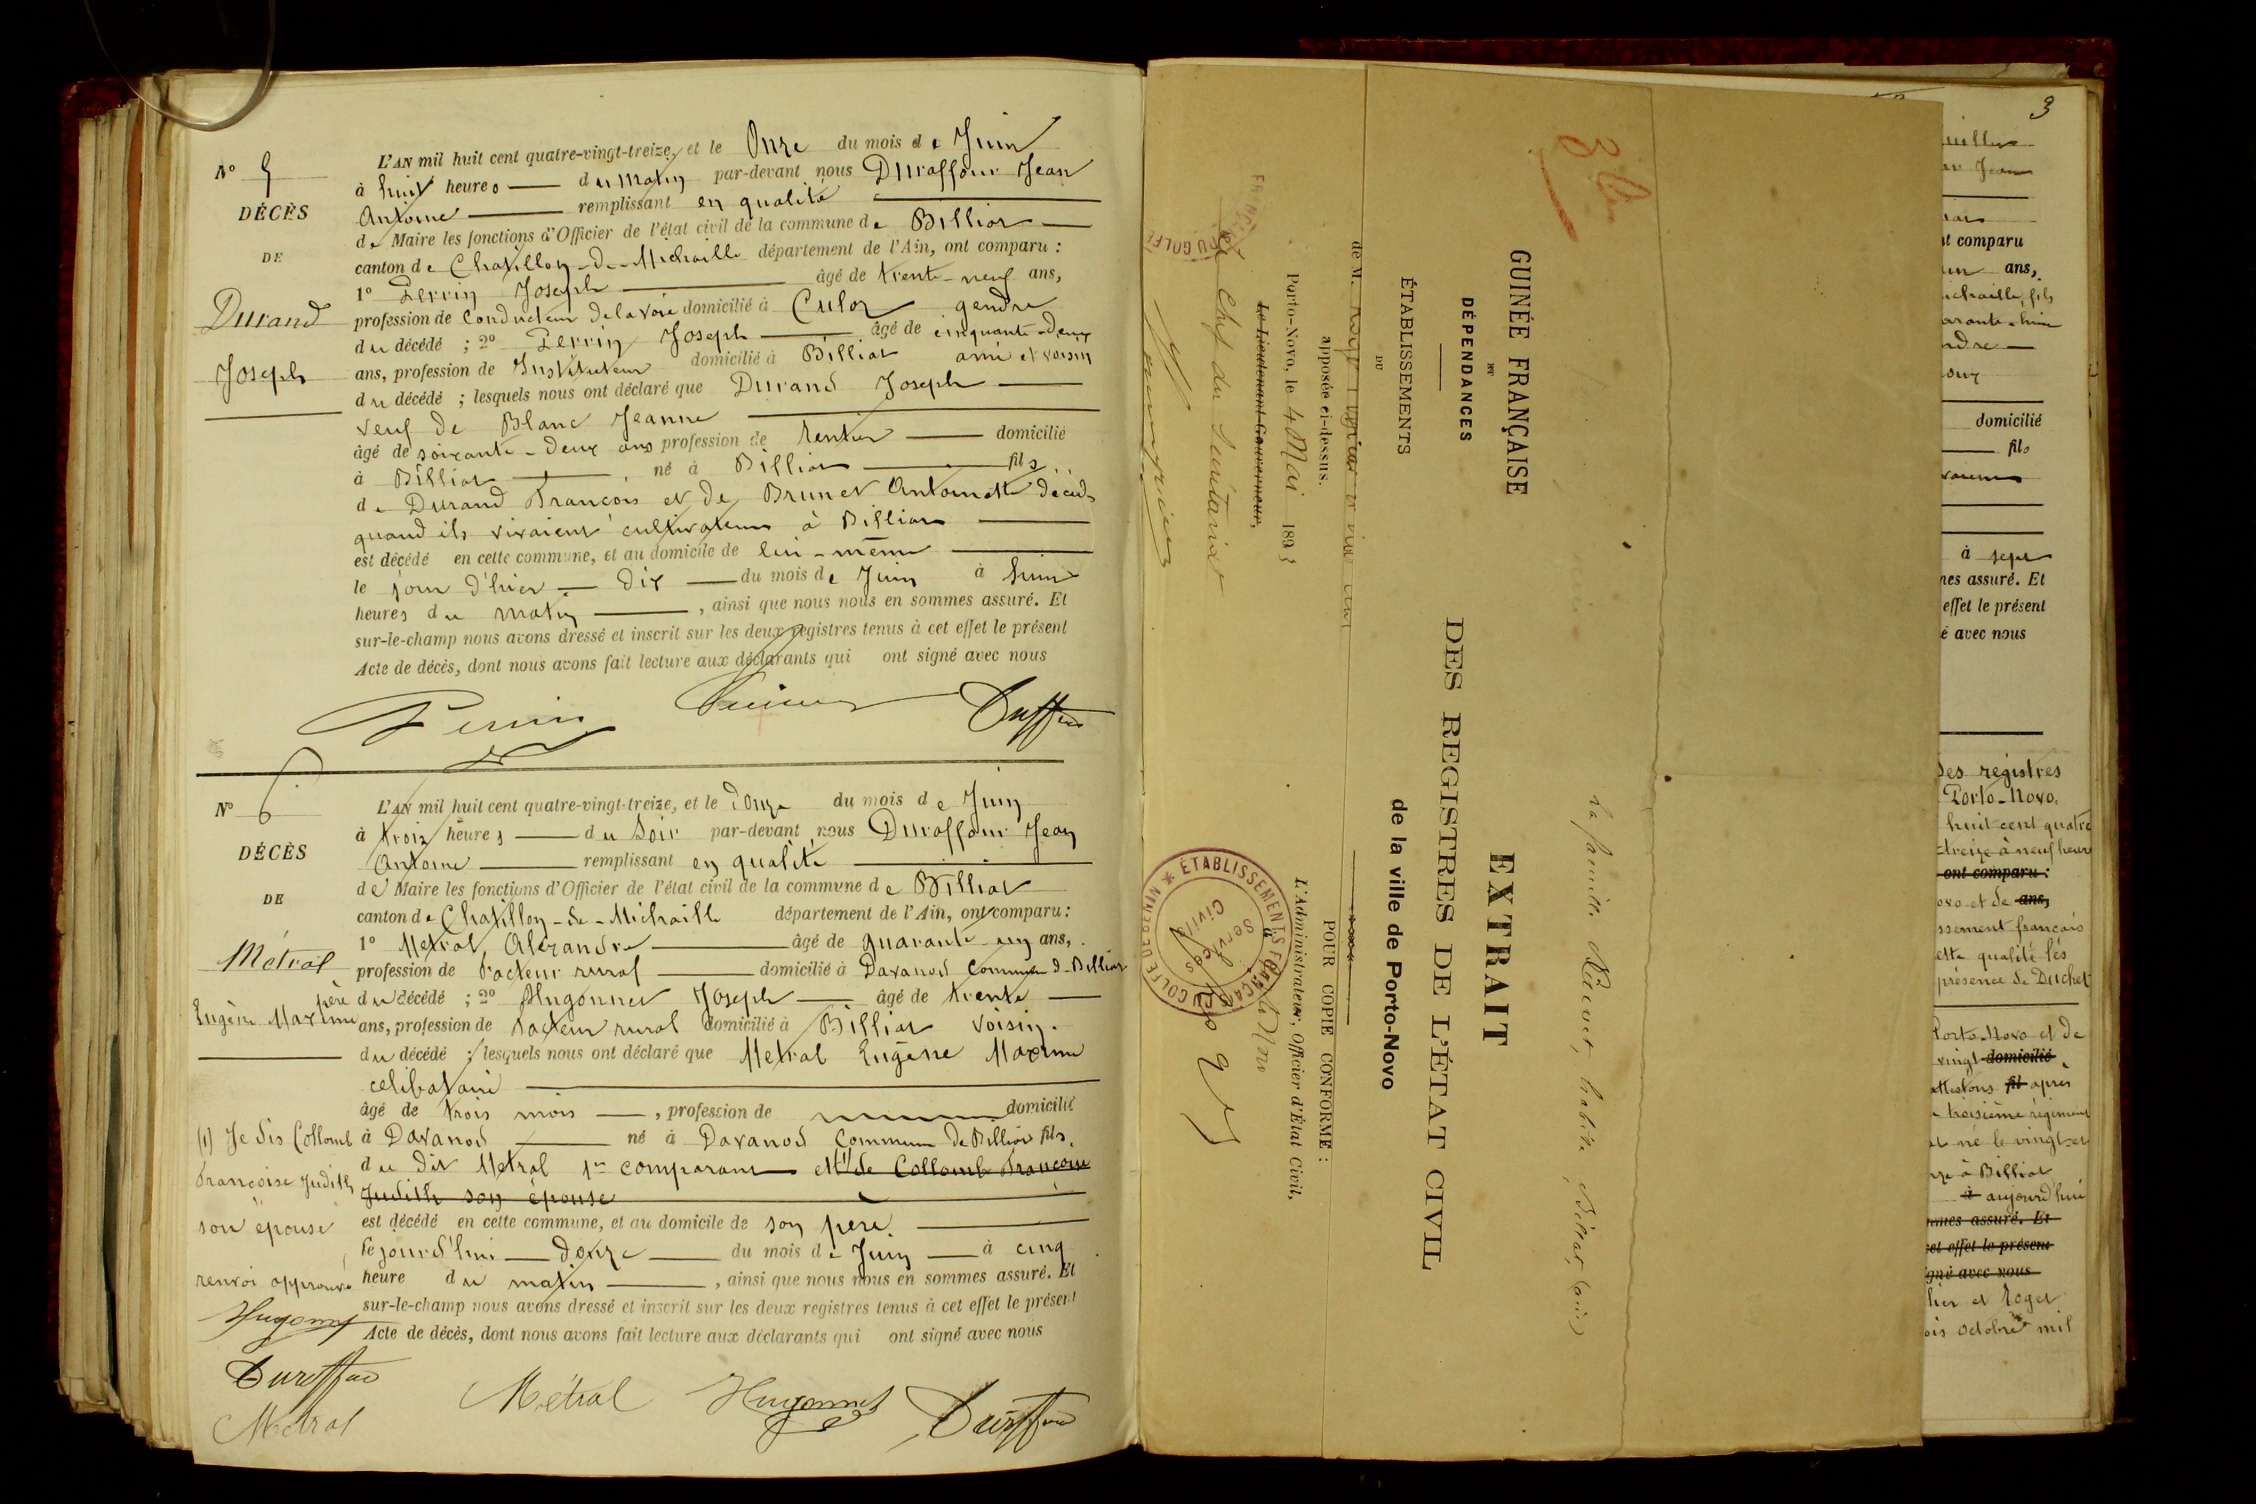 N° 5
DÉCÈS
DE
Durand
Joseph
L'AN mil huit cent quatre-vingt-treize, et le Onze du mois de Juin
à huit heures du matin par-devant nous Duraffour Jean
Antoine remplissant en qualité
de Maire les fonctions d'Officier de l'état civil de la commune de Billiat
canton de Chatillon-de-Michaille département de l'Ain, ont comparu :
1° Perrin Joseph âgé de trente-neuf ans,
profession de Conducteur de la voie domicilié à Culoz gendre
du décédé ; 2° Perrin Joseph âgé de cinquante-deux
ans, profession de Instituteur domicilié à Billiat ami et voisin
du décédé ; lesquels nous ont déclaré que Durand Joseph
veuf de Blanc Jeanne
âgé de soixante-deux ans profession de rentier domicilié
à Billiat né à Billiat fils
de Durand François et de Brunet Antoinette décédés
quand ils vivaient cultivateurs à Billiat
est décédé en cette commune, et au domicile de lui-même
le jour d'hier dix du mois de Juin à huit
heures du matin , ainsi que nous nous en sommes assuré. Et
sur-le-champ nous avons dressé et inscrit sur les deux registres tenus à cet effet le présent
Acte de décès, dont nous avons fait lecture aux déclarants qui ont signé avec nous
Perrin
N° 6
DÉCÈS
DE
Métral
Eugène Maxime
L'AN mil huit cent quatre-vingt-treize, et le Douze du mois de Juin
à trois heures du soir par-devant nous Duraffour Jean
Antoine remplissant en qualité
de Maire les fonctions d'Officier de l'état civil de la commune de Billiat
canton de Chatillon-de-Michaille département de l'Ain, ont comparu :
1° Metral Alexandre âgé de quarante-un ans,
profession de facteur rural domicilié à Davanod Commune de Billiat
père du décédé ; 2° Hugonnet Joseph âgé de trente
ans, profession de facteur rural domicilié à Billiat voisin
du décédé ; lesquels nous ont déclaré que Metral Eugène Maxime
célibataire
âgé de trois mois , profession de domicilié
à Davanod né à Davanod Commune de Billiat fils
du dit Metral 1er comparant et (1) de Collomb Françoise
Judith son épouse
est décédé en cette commune, et au domicile de son père
le jourd'hui douze du mois de Juin à cinq
heure du matin , ainsi que nous nous en sommes assuré. Et
sur-le-champ nous avons dressé et inscrit sur les deux registres tenus à cet effet le présent
Acte de décès, dont nous avons fait lecture aux déclarants qui ont signé avec nous
(1) Je dis Collomb
Françoise Judith
son épouse
renvoi approuvé
Hugonnet
Métral
Métral Hugonnet
GUINÉE FRANÇAISE
ET
DÉPENDANCES
ÉTABLISSEMENTS
DU
apposée ci-dessus.
Porto-Novo, le 4 Mai 1893
Le Lieutenant-Gouverneur,
Le Chef du Secrétariat
EXTRAIT
DES REGISTRES DE L'ÉTAT CIVIL
de la ville de Porto-Novo
POUR COPIE CONFORME :
L'Administrateur, Officier d'État Civil,
ÉTABLISSEMENTS FRANÇAIS DU GOLFE DE BENIN
Services Civils
3
Jean
nt comparu
ans,
domicilié
fils
à sept
mes assuré. Et
effet le présent
é avec nous
des registres
Porto-Novo.
huit cent quatre
treize à neuf heure
ont comparu :
ovo et de ans,
ssement français
ette qualité les
présence de Duchet
Porto-Novo et de
vingt domicilié
attestons fil après
troisième régiment
né le vingt-et
à Billiat
à aujourd'hui
mmes assuré. Et
cet effet le présent
igné avec nous
lier et Roget
ois octobre mil